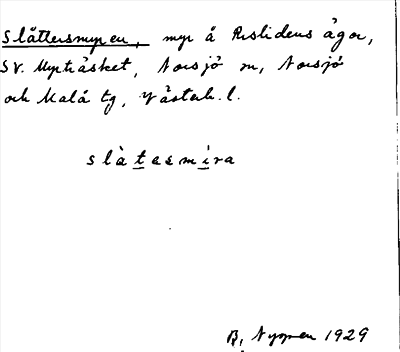 Slåttersmyren, myr å Risliden ägor,
SV. Myrträsket, Norsjö sn, Norsjö
och Malå tg, Västerb. l.
slàtasmira
B. Nyman 1929